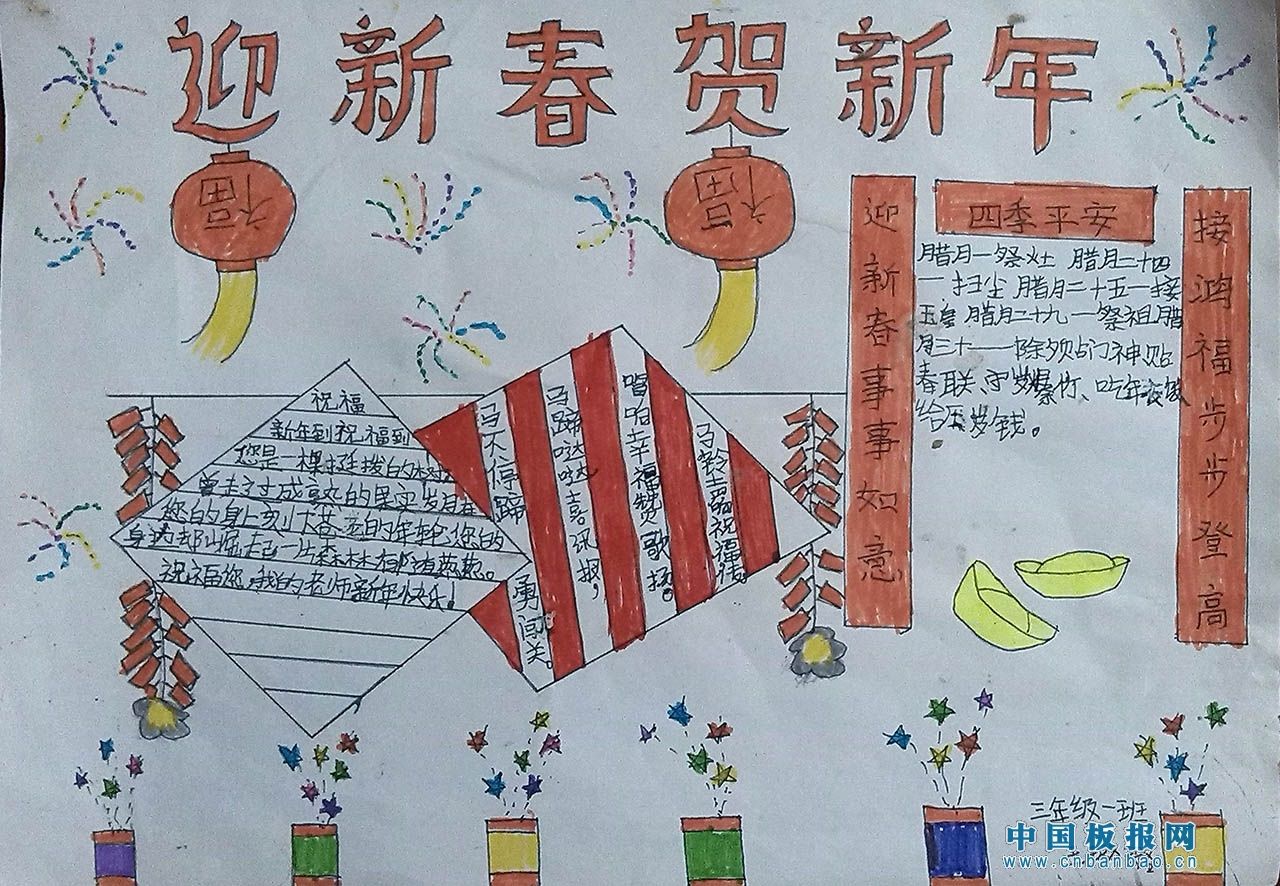 迎新春贺新年
福
福
迎新春事事如意
四季平安
接鸿福步步登高
腊月一祭灶 腊月二十四
一扫尘 腊月二十五一接
玉皇 腊月二十九一祭祖 腊
月三十一一除夕贴门神贴
春联、守岁爆竹、吃年夜饭
给压岁钱。
祝福
新年到祝福到
您是一棵挺拨的树
曾走了过成熟的果实岁月在
您的身上刻下苍老的年轮您的
身边却崛起一片森林
祝福您,我的老师新年快乐!
马不停蹄 勇闯关。
马蹄哒哒喜讯报,
咱幸福赞歌扬。
马铃声声祝福传。
三年级一班
中国板报网
www.cnbanbao.cn